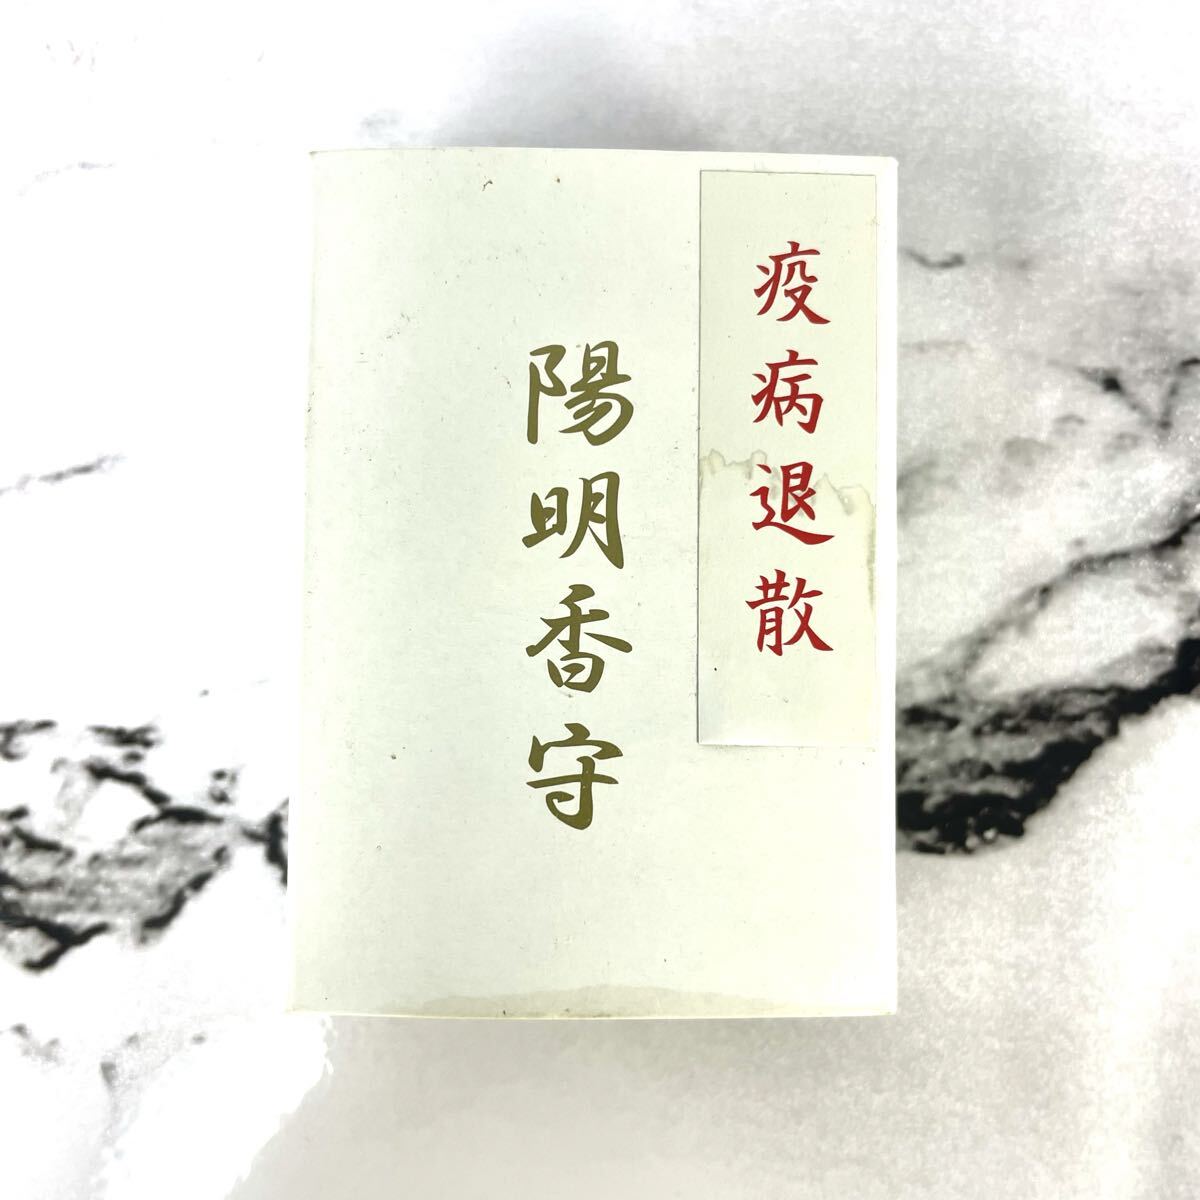 疫病退散
陽明香守